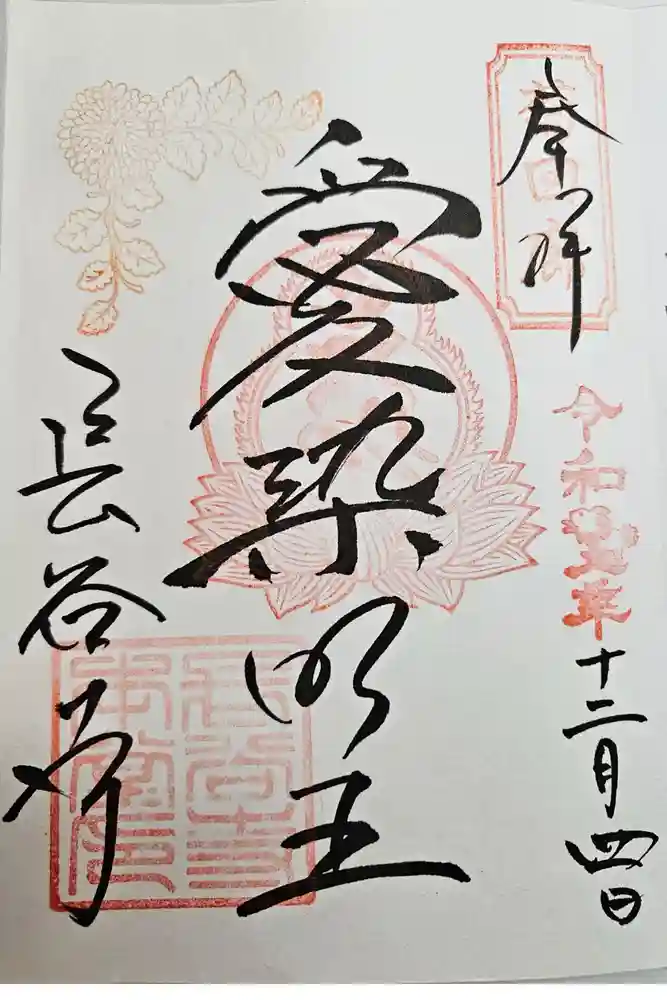 奉拝
令和
年
十二月四日
愛染明王
長谷寺